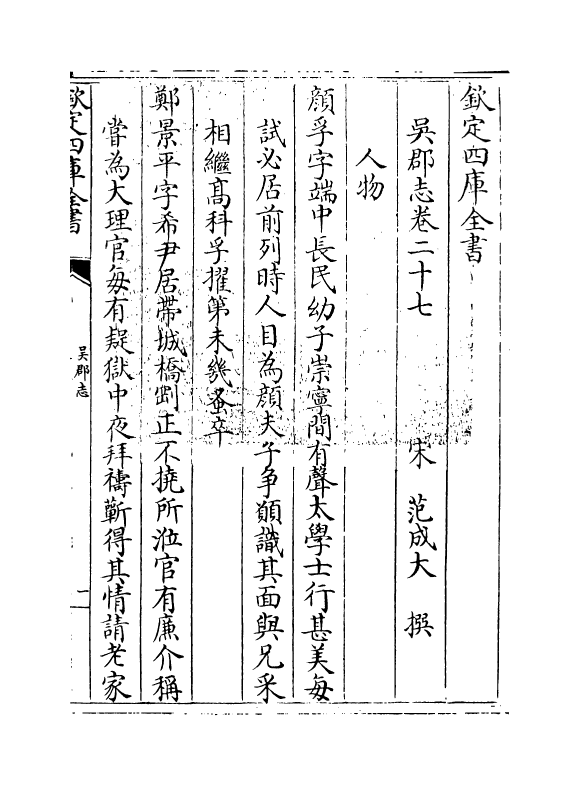 欽定四庫全書
吳郡志卷二十七
宋 范成大 撰
人物
顔孚字端中長民幼子崇寧間有聲太學士行甚美每
試必居前列時人目為顔夫子争願識其面與兄采
相繼髙科孚擢第未幾蚤卒
鄭景平字希尹居帶城橋剛正不撓所涖官有亷介稱
嘗為大理官每有疑獄中夜拜禱蘄得其情請老家
欽定四庫全書
吳郡志